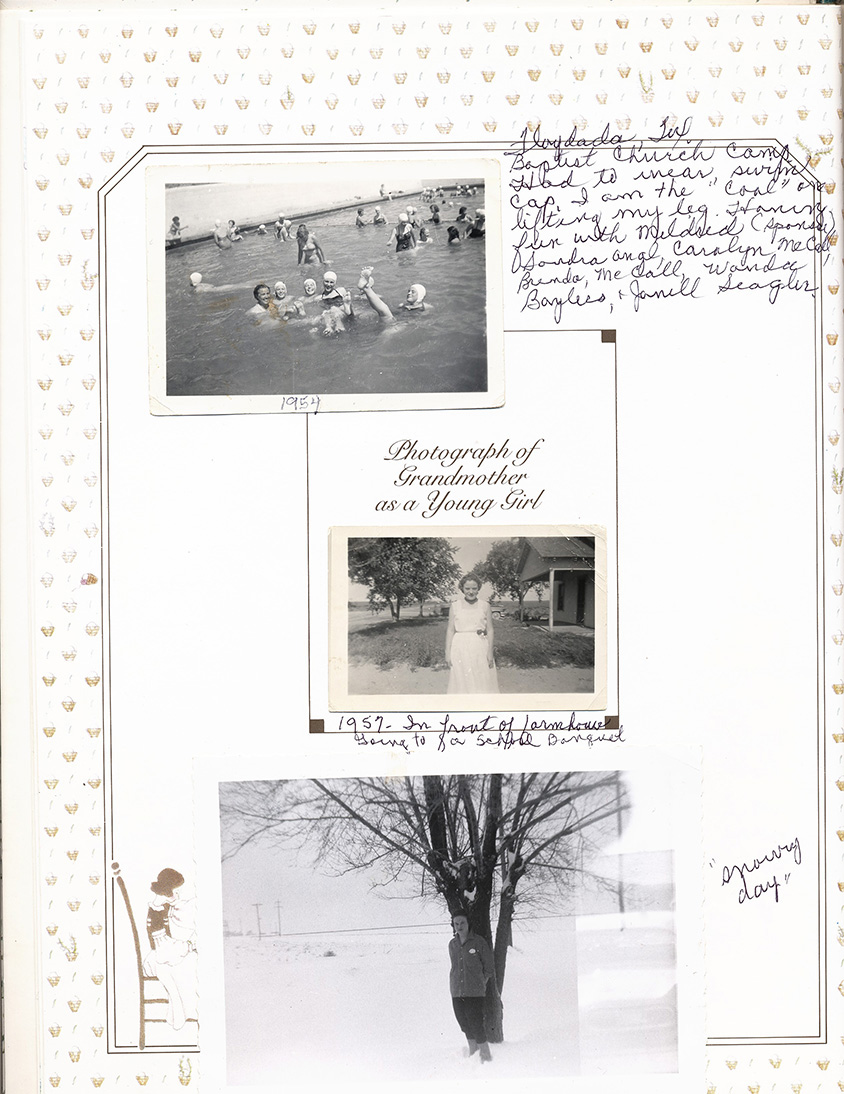 Floydada, Tex.
Baptist Church Camp
Had to wear swim
cap. I am the "Cool" one
lifting my leg. Having
fun with Mildred (sponsor)
Sandra and Carolyn McCall,
Brenda McCall, Wanda
Bayless, & Janell Seagler.
1954
Photograph of
Grandmother
as a Young Girl
1957- In front of farmhouse
Going to a School Banquet
"snowy
day"